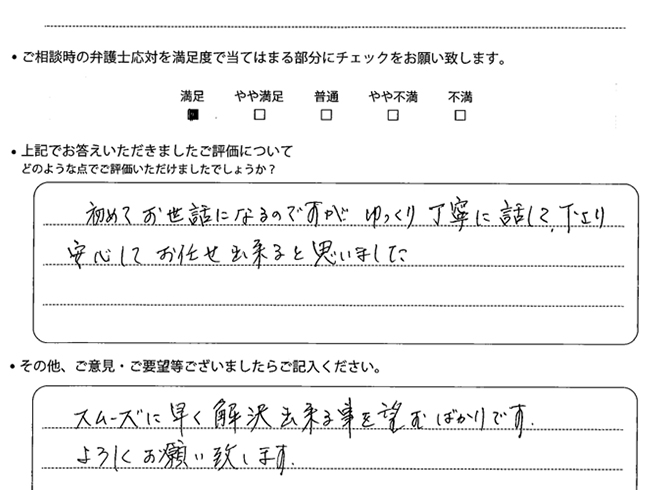 ・ご相談時の弁護士応対を満足度で当てはまる部分にチェックをお願い致します。
満足 やや満足 普通 やや不満 不満
・上記でお答えいただきましたご評価について
どのような点でご評価いただけましたでしょうか？
初めてお世話になるのですが ゆっくり丁寧に話して、下さり
安心してお任せ出来ると思いました
・その他、ご意見・ご要望等ございましたらご記入ください。
スムーズに早く解決出来る事を望むばかりです.
よろしくお願い致します.